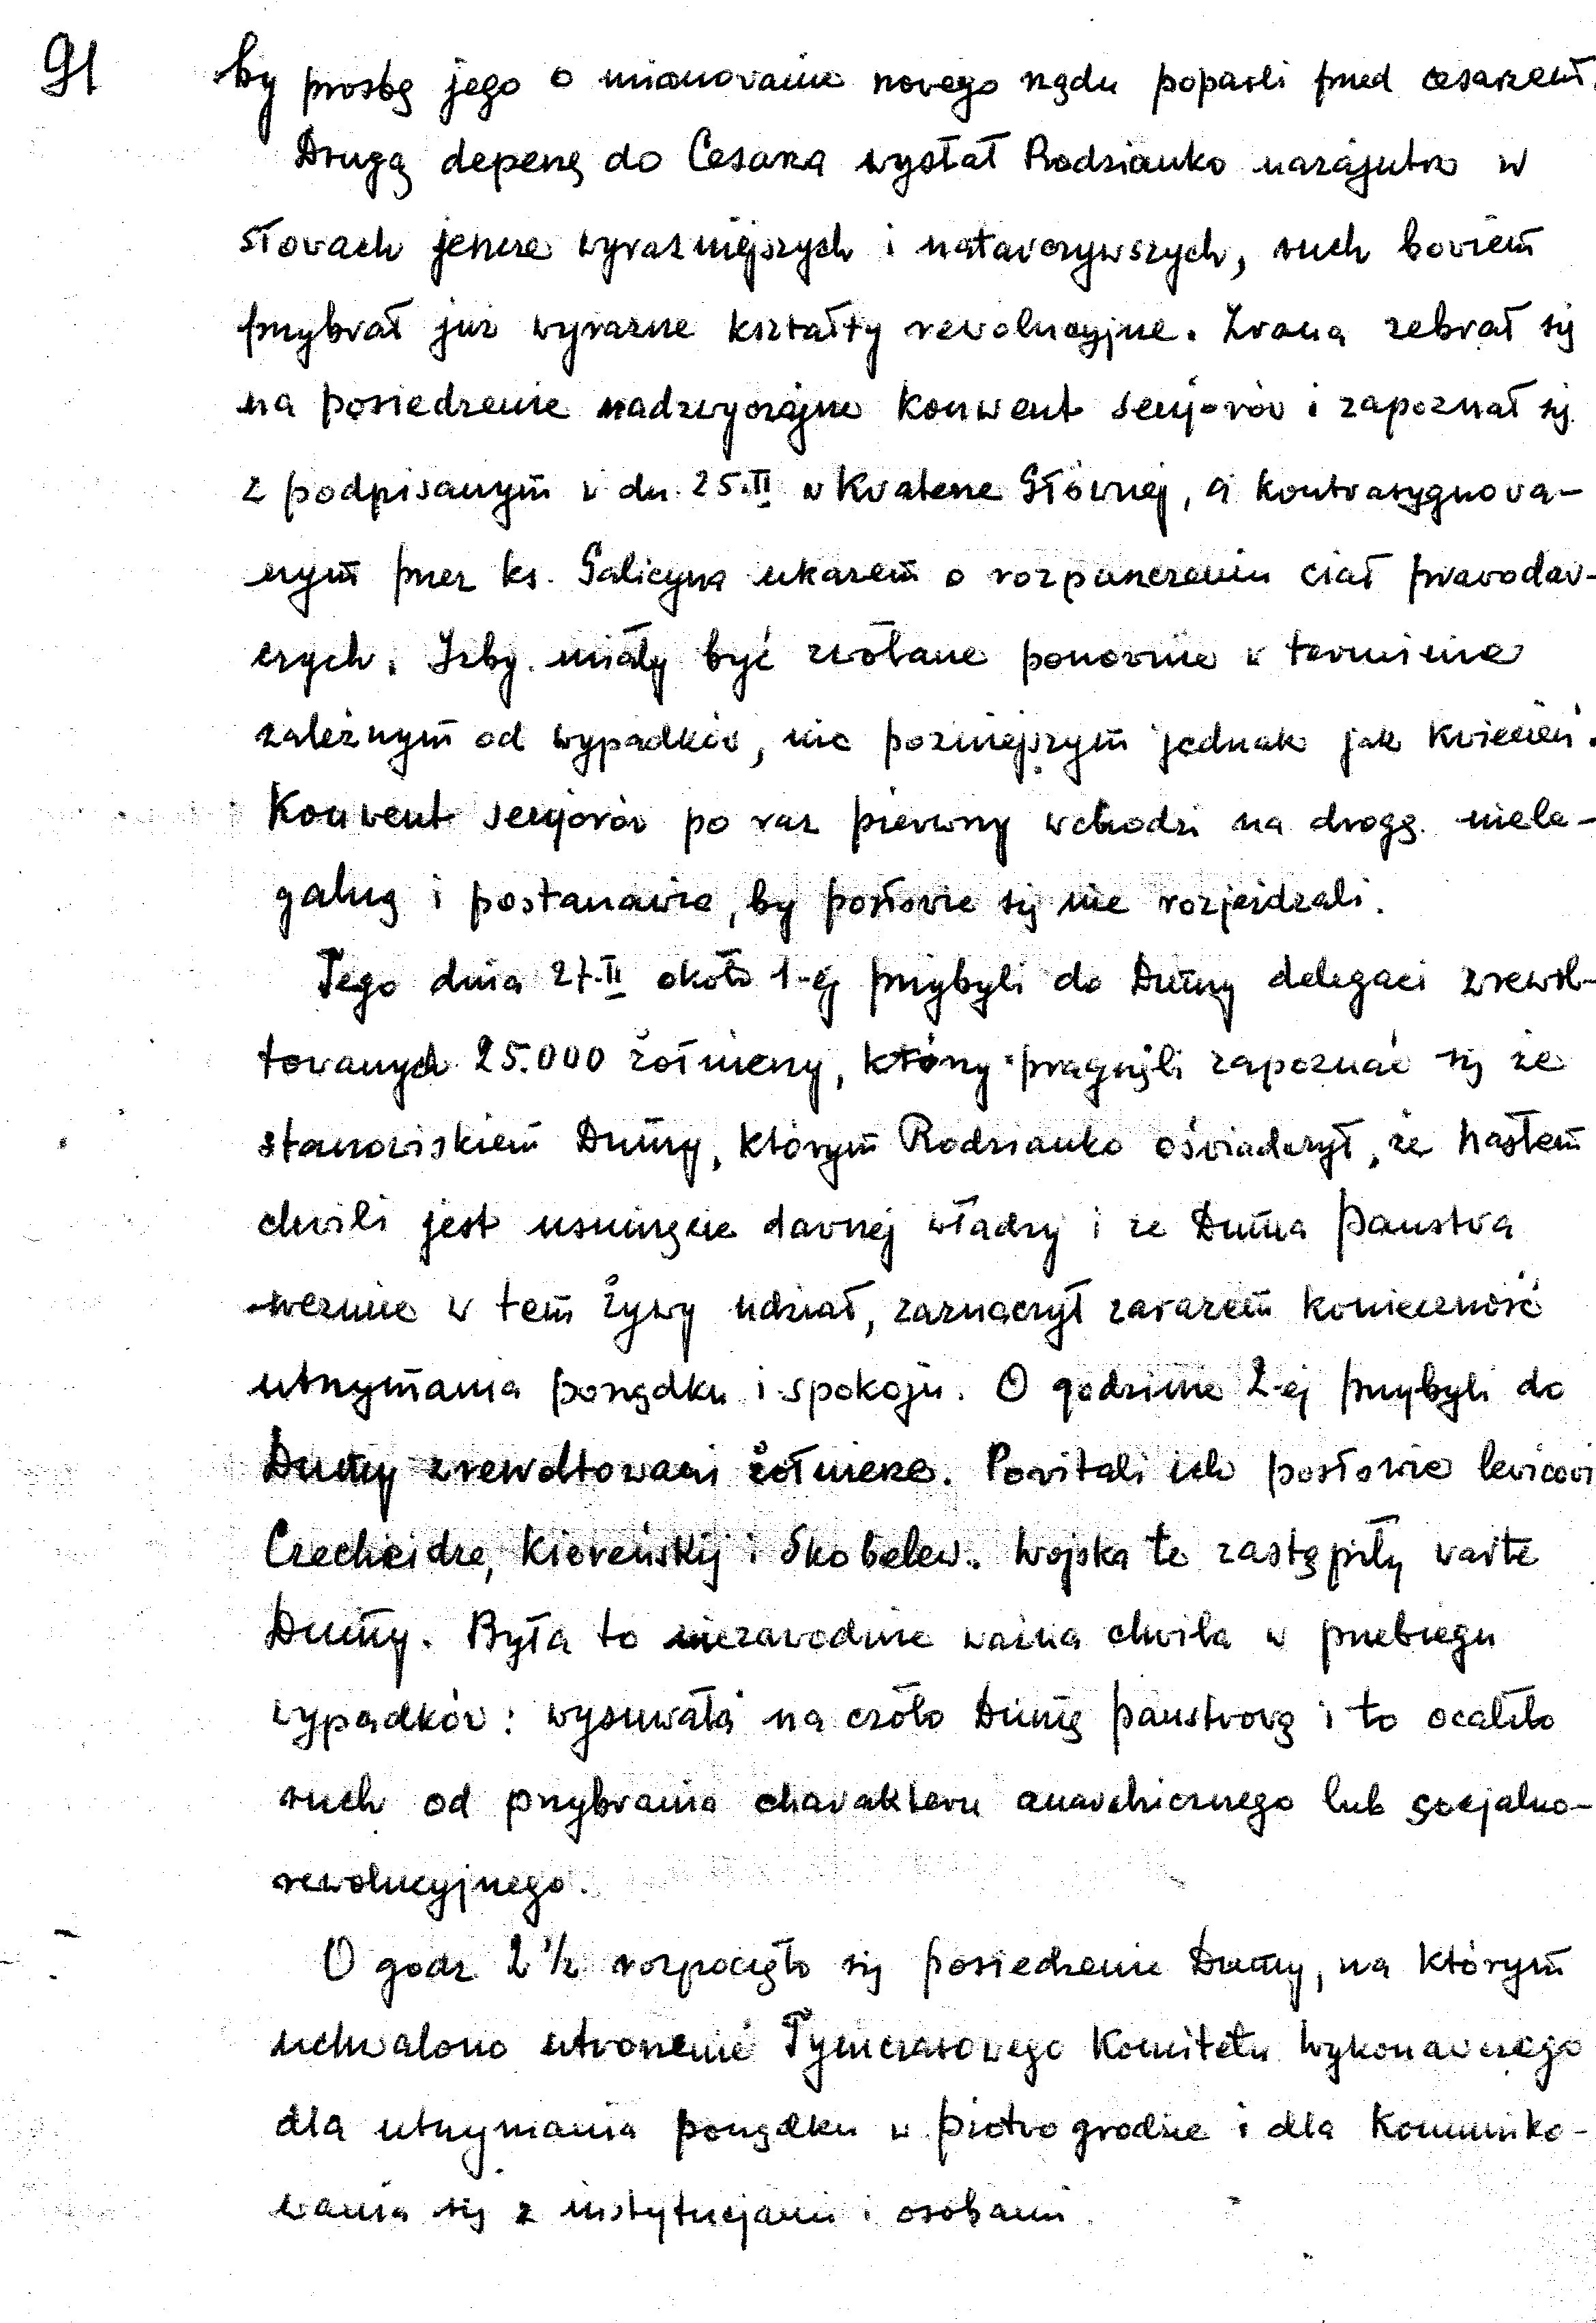 91
by prosbę jego o mianowanie nowego rządu poparli przed cesarzem.
Drugą depeszę do Cesarza wysłał Rodzianko nazajutrz w
słowach jeszcze wyraźniejszych i natarczywszych, ruch bowiem
przybrał już wyraźne kształty rewolucyjne. Zrana zebrał się
na posiedzenie nadzwyczajne konwent senjorów i zapoznał się
z podpisanym w dn. 25.II w Kwaterze Głównej, a kontrasygnowa-
nym przez ks. Galicyna ukazem o rozpuszczeniu ciał prawodaw-
czych. Izby miały być zwołane ponownie w terminie
zależnym od wypadków, nie poźniejszym jednak jak kwiecień.
Konwent senjorów po raz pierwszy wchodzi na drogę niele-
galną i postanawia, by posłowie się nie rozjeżdżali.
Tego dnia 27.II około 1-ej przybyli do Dumy delegaci zrewol-
towanych 25.000 żołnierzy, którzy pragnęli zapoznać się ze
stanowiskiem Dumy, którym Rodzianko oświadczył, że hasłem
chwili jest usunięcie dawnej władzy i że Duma Państwa
weźmie w tem żywy udział, zaznaczył zarazem konieczność
utrzymania porządku i spokoju. O godzinie 2-ej przybyli do
Dumy zrewoltowani żołnierze. Powitali ich posłowie lewicowi
Czecheidze, Kiereńskij i Skobelew. Wojska te zastąpiły wartę
Dumy. Była to niezawodnie ważna chwila w przebiegu
wypadków: wysuwała na czoło Dumę państwową i to ocaliło
ruch od przybrania charakteru anarchicznego lub socjalno-
rewolucyjnego.
O godz 2 1/2 rozpoczęło się posiedzenie Dumy, na którym
uchwalono utworzenie Tymczasowego Komitetu Wykonawczego
dla utrzymania porządku w Piotrogrodzie i dla komuniko-
wania się z instytucjami i osobami